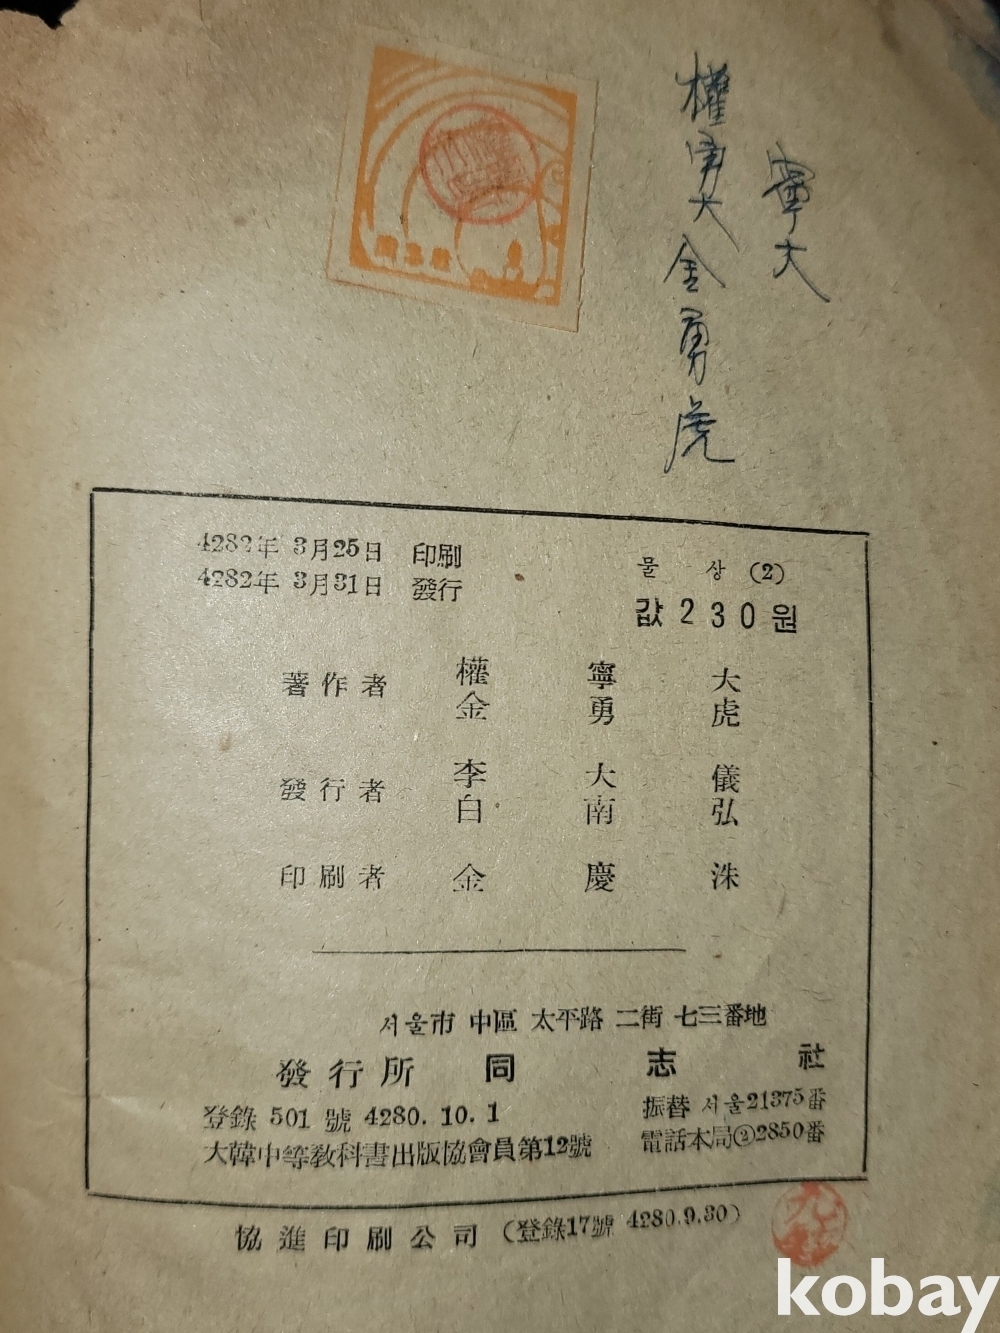 權勇大金勇虎
寧大
4282年 3月25日 印刷
4282年 3月31日 發行
물상 (2)
값 230원
著作者 權寧大
金勇虎
發行者 李大儀
白南弘
印刷者 金慶洙
서울市 中區 太平路 二街 七三番地
發行所 同志社
登錄 501 號 4280.10.1
振替 서울21375番
大韓中等敎科書出版協會員第12號
電話本局②2850番
協進印刷公司 (登錄17號 4280.9.30)
kobay